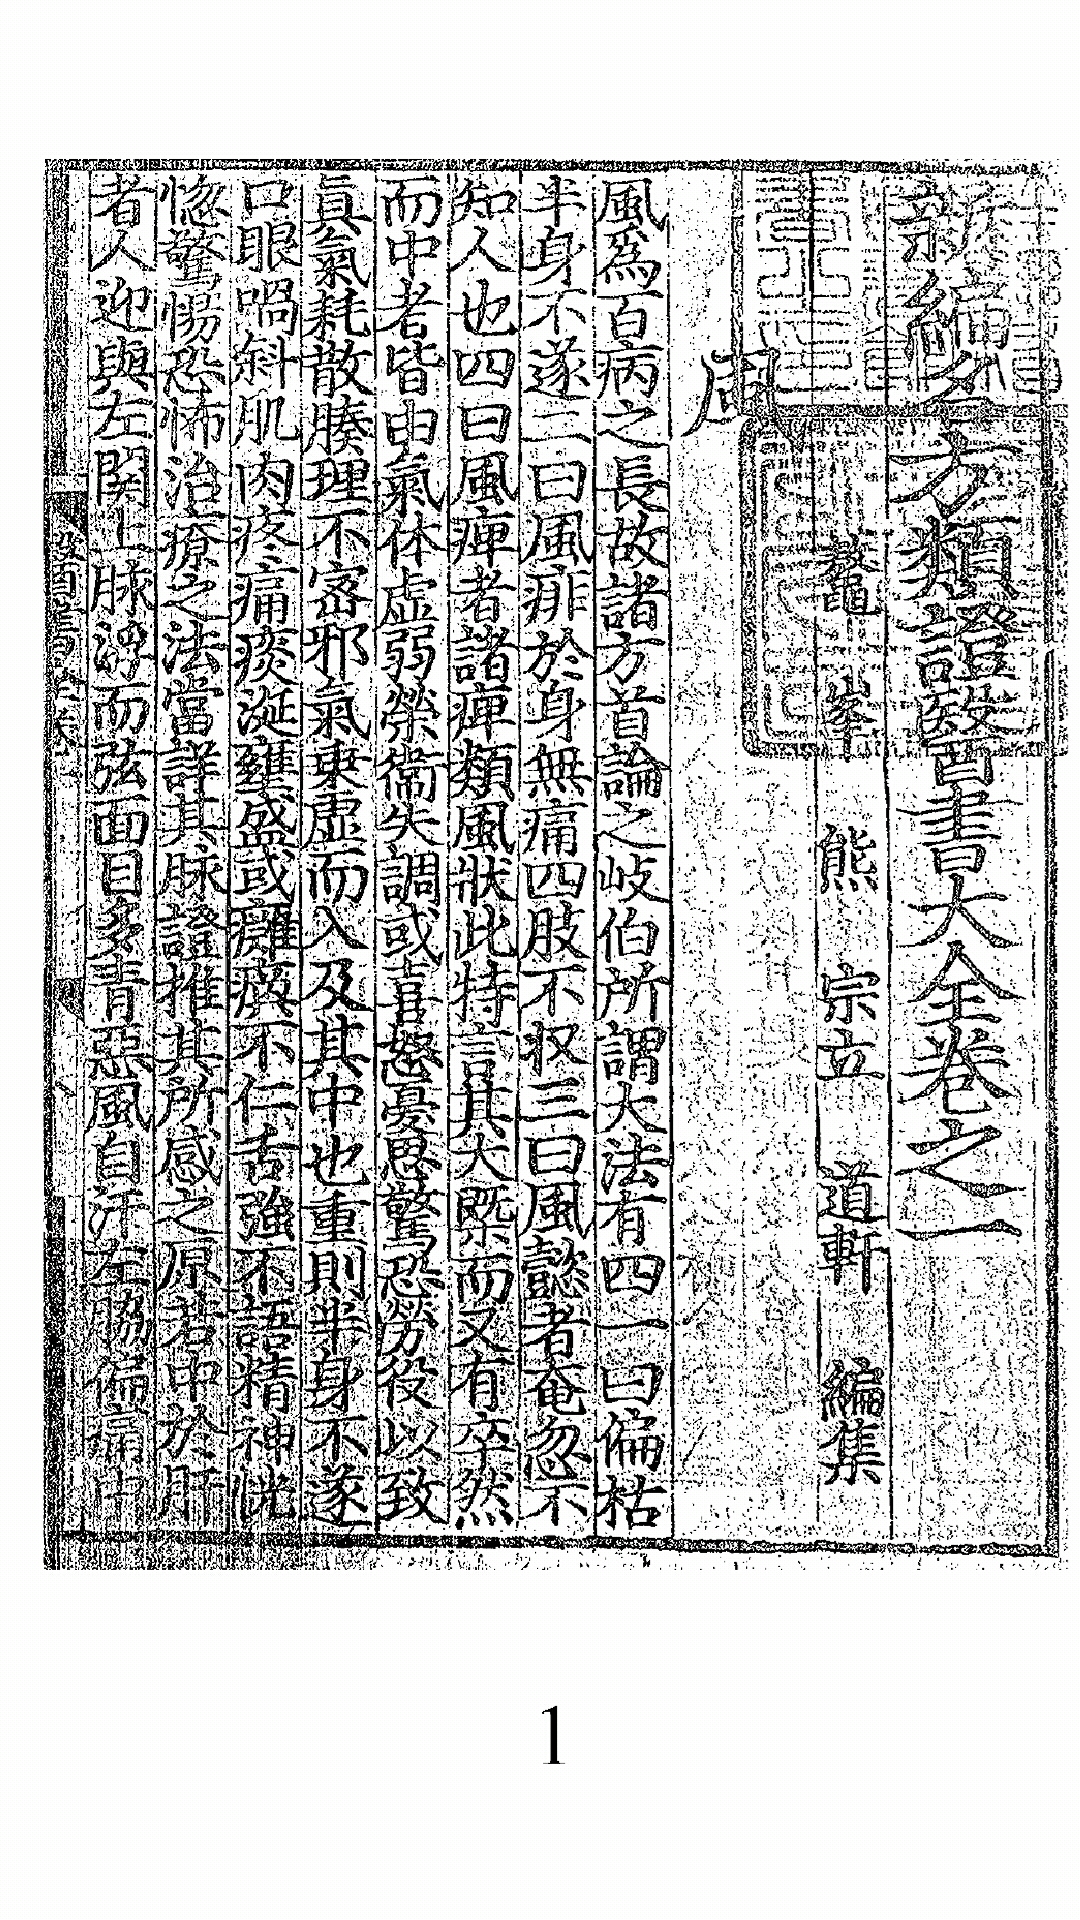 新編名方類證醫書大全卷之一
鼇峯 熊 宗立 道軒 編集
風
風爲百病之長故諸方首論之岐伯所謂大法有四一曰偏枯
半身不遂二曰風痱於身無痛四肢不収三曰風懿者奄忽不
知人也四曰風痺者諸痺類風狀此特言其大槩而又有卒然
而中者皆由氣体虚弱榮衞失調或喜怒憂思驚恐勞役以致
眞氣耗散腠理不宻邪氣乗虚而入及其中也重則半身不遂
口眼喎斜肌肉疼痛痰涎壅盛或癱瘓不仁舌強不語精神恍
惚驚惕恐怖治療之法當詳其脉證推其所感之原若中於肝
者人迎與左関上脉浮而弦面目多青惡風自汗左脇偏痛中